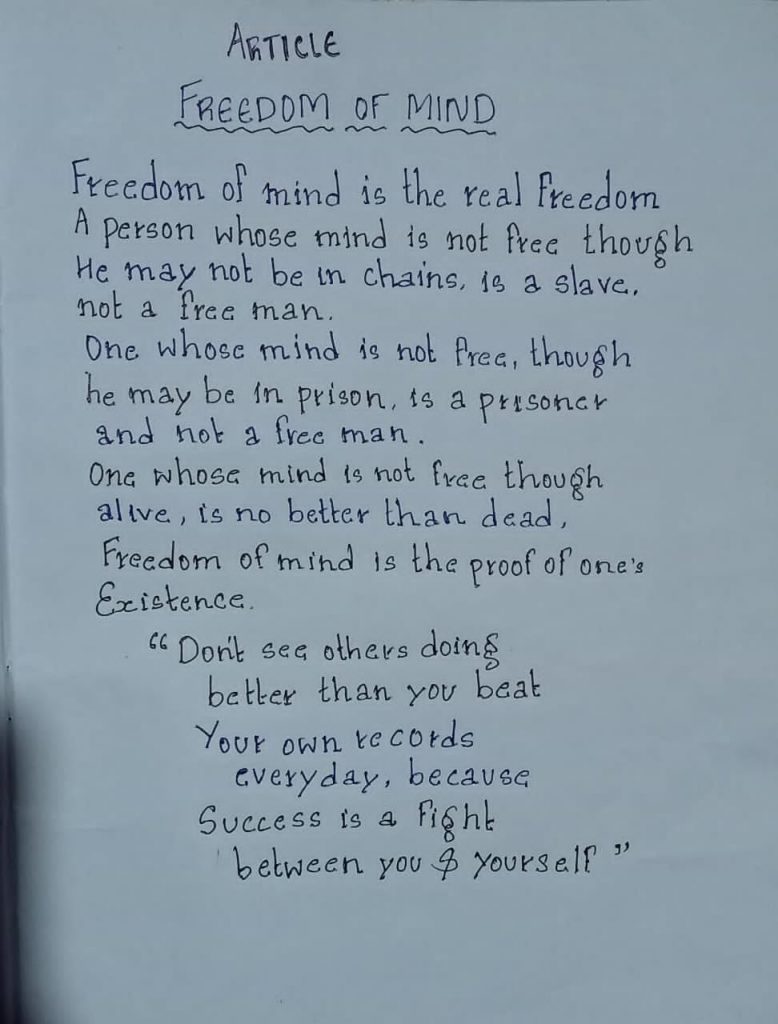 ARTICLE
FREEDOM OF MIND
Freedom of mind is the real freedom
A person whose mind is not free though
He may not be in chains, is a slave,
not a free man.
One whose mind is not free, though
he may be in prison, is a prisoner
and not a free man.
One whose mind is not free though
alive, is no better than dead,
Freedom of mind is the proof of one's
Existence.
“Don't see others doing
better than you beat
Your own records
everyday, because
Success is a fight
between you & yourself”